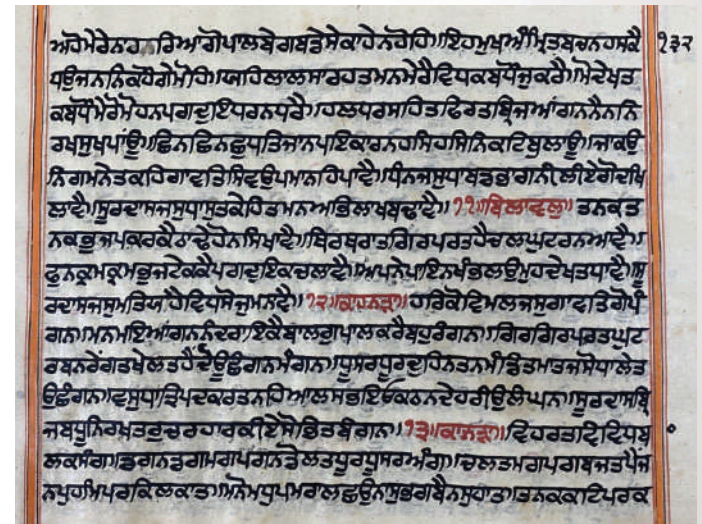 ਅਹੋਮੇਰੇਨਹ੍ਹਰਿਆਗੋਪਾਲਬੇਗਬਡੋਸੇਕਾਹੇਨਹੋਹਿ॥ਇਹਮੁਖਅੰਮ੍ਰਿਤਬਚਨਹਸਕੈ ੧੩੨
ਧਉਜਨਨਿਕਹੈਗੋਮੋਹਿ॥ਯਾਹਿਲਾਲਸਾਰਹਤਮਨਮੇਰੈਵਿਧਕਬਧੌਜੁਕਰੈ॥ਮੋਦੇਖਤ
ਕਬਧੌਮੇਰੋਮੋਹਨਪਗਦ੍ਵਇਧਰਨਧਰੈ॥ਹਲਧਰਸਹਿਤਫਿਰਤਬ੍ਰਿਜਆਂਗਨਨੈਨਨਿ
ਰਖਸੁਖਪਾਂਊ॥ਛਿਨਛਿਨਛੁਧਤਿਜਾਨਪਇਕਾਰਨਹਸਿਹਸਿਨਿਕਟਿਬੁਲਾਊ॥ਜਾਕਉ
ਨਿਗਮਨੇਤਕਹਿਗਾਵਤਿਸਿਵਉਪਮਾਨਹਿਪਾਵੈ॥ਧੰਨਜਸੁਧਾਬਡਭਾਗਨਿਲੀਏਗੋਦਖਿ
ਲਾਵੈ॥ਸੂਰਦਾਸਜਸੁਧਾਸੁਤਕੇਹਿਤਮਨਅਭਿਲਾਖਬਢਾਵੈ॥੧੧॥ਬਿਲਾਵਲੁ॥ਤਨਕਤ
ਨਕਭੁਜਪਕਰਕੈਠਾਢੇਹੋਨਸਿਖਾਵੈ॥ਥਿਰਥਰਾਤਗਿਰਪਰਤਹੈਚਲਘੁਟਰਨਆਵੈ॥
ਫੁਨਕ੍ਰਮਕ੍ਰਮਭੁਜਟੇਕਕੈਪਗਦ੍ਵਇਕਚਲਾਵੈ॥ਅਪਨੇਪਾਇਨਖੰਭਲਉਮੁਹਦੇਖਤਧਾਵੈ॥ਸੂ
ਰਦਾਸਜਸੁਮਤਿਯਹੈਵਿਧਸੋਜੁਮਨਾਵੈ॥੧੨॥ਕਾਨੜਾ॥ਹਰਿਕੋਬਿਮਲਜਸੁਗਾਵਤਿਗੋਪੰ
ਗਨਾ॥ਮਨਮਇਆਂਗਨਨੰਦਰਾਇਕੈਬਾਲਗੁਪਾਲਕਰੈਬਹੁਰੰਗਨਾ॥ਗਿਰਗਿਰਪਰਤਘੁਟ
ਰਬਨਰੇਂਗਤਖੇਲਤਹੈਦੋਊਛੰਗਨਮੰਗਨਾ॥ਧੂਸਰਧੂਰਦੁਹਿਨਤਨਮੰਡਿਤਮਾਤਜਸੋਧਾਲੇਤ
ਉਛੰਗਨਾ॥ਵਸੁਧਾਤ੍ਰਿਪਦਕਰਤਨਹਿਆਲਸਭਇਓਕਠਨਦੇਹਰੀਉਲੰਘਨਾ॥ਸੂਰਦਾਸਬ੍ਰਿ
ਜਬਧੁਨਿਰਖਤਰੁਚਰਹਾਰਕੀਏਸੋਭਿਤਬੰਗਨਾ॥੧੩॥ਕਾਨੜਾ॥ਵਿਹਰਤਵਿਵਿਧਬ
ਲਕਸੰਗ॥ਡਗਨਡਗਮਗਪਗਨਡੋਲਤਧੂਰਧੂਸਰਅੰਗ॥ਚਲਤਮਗਪਗਬਜਤਪੈਂਜ
ਨਪੁਹਮਿਪਰਕਿਲਕਾਤ॥ਮਨੋਮਧੁਪਮਰਾਲਛਉਨਸੁਭਗਬੈਨਸੁਹਾਤ॥ਤਨਕਕਟਿਪਰਕ